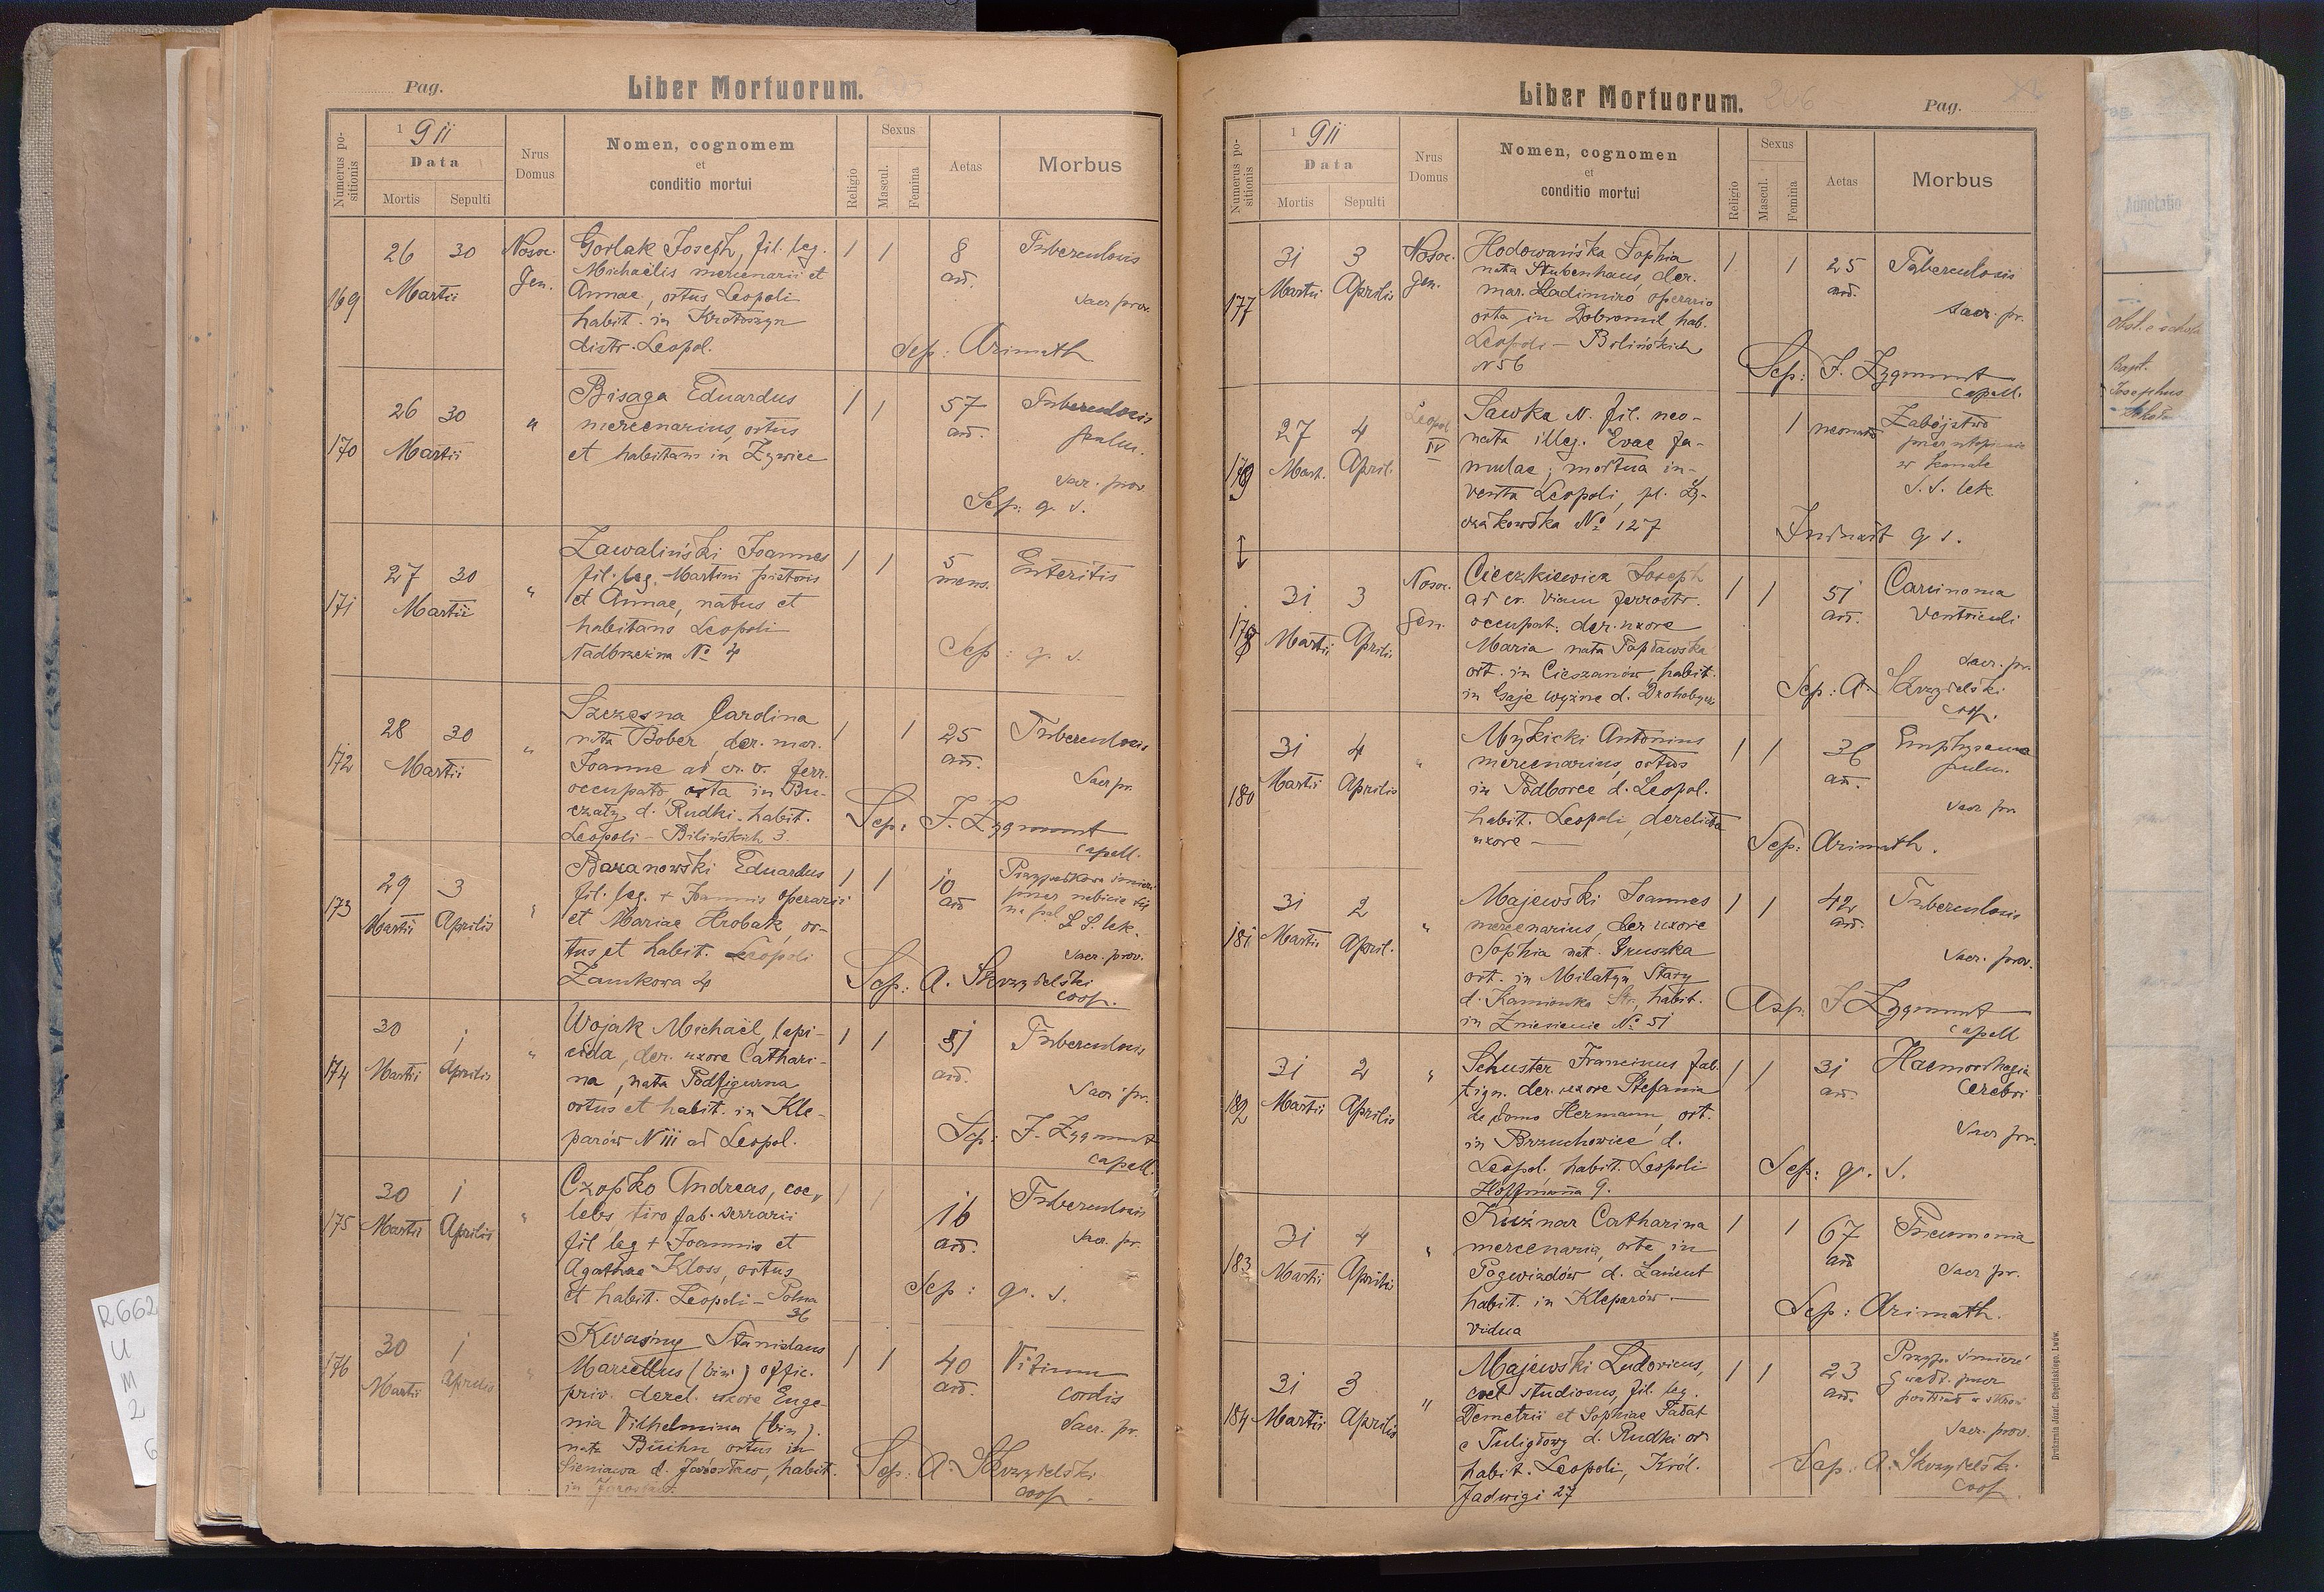 Pag.
Liber Mortuorum.
Numerus positionis
1911
Data
Mortis
Sepulti
Nrus Domus
Nomen, cognomem
et
conditio mortui
Religio
Sexus
Mascul.
Femina
Aetas
Morbus
169
26 30
Martii
Nosoc.
Gen.
Gorlak Joseph, fil. leg.
Michaëlis mercenarii et
Annae, ortus Leopoli
habit. in Krotoszyn
distr. Leopol.
1 1
8
an.
Tuberculosis
Sacr. prov.
Sep: Arimath
170
26 30
Martii
"
Bisaga Eduardus
mercenarius, ortus
et habitans in Żywiec
1 1
57
an.
Tuberculosis
pulm.
Sacr. prov.
Sep: q. s.
171
27 30
Martii
"
Zawaliński Joannes
fil. leg. Martini pistoris
et Annae, natus et
habitans Leopoli
Nadbrzeżna No 4
1 1
5
mens.
Enteritis
Sep: q. s.
172
28 30
Martii
"
Szczęsna Carolina
nata Bober, der. mar.
Joanne ad cr. v. ferr.
occupato orta in Bu-
czały d. Rudki, habit.
Leopoli - Bilińskich 3.
1 1
25
an.
Tuberculosis
Sacr. pr.
Sep: F. Zygmunt
capell.
173
29 3
Martii Aprilis
"
Baranowski Eduardus
fil. leg. + Joannis operarii
et Mariae Hrobak, or-
tus et habit. Leopoli
Zamkowa 4
1 1
10
an.
Przypadkowa śmierć
przez nabicie się
na pal
S. S. lek.
Sacr. prov.
Sep: A. Skrzydelski
coop.
174
30 1
Martii Aprilis
"
Wojak Michaël, lapi-
cida, der. uxore Cathari-
na, nata Podfigurna
ortus et habit. in Kle-
parów N 111 ad Leopol.
1 1
51
an.
Tuberculosis
Sacr. pr.
Sep: F. Zygmunt
capell.
175
30 1
Martii Aprilis
"
Czopko Andreas, coe-
lebs tiro fab. serrarii
fil leg + Joannis et
Agathae Kloss, ortus
et habit. Leopoli - Polna
36
1 1
16
an.
Tuberculosis
Sacr. pr.
Sep: q. s.
176
30 1
Martii Aprilis
"
Kwaśny Stanislaus
Marcellus (bin) offic.
priv. derel. uxore Euge-
nia Wilhelmina (bin).
nata Büihn ortus in
Sieniawa d. Jarosław, habit.
in Jarosław.
1 1
40
an.
Vitium
cordis
Sacr. pr.
Sep: A. Skrzydelski
coop.
Liber Mortuorum.
206
Pag.
Numerus positionis
1911
Data
Mortis
Sepulti
Nrus Domus
Nomen, cognomen
et
conditio mortui
Religio
Sexus
Mascul.
Femina
Aetas
Morbus
177
31 3
Martii Aprilis
Nosoc.
Gen.
Hodowańska Sophia
nata Stubenhaus, der.
mar. Ladimiro operario
orta in Dobromil, hab.
Leopoli - Bilińskich
N 56
1 1
25
an.
Tuberculosis
Sacr. pr.
Sep: F. Zygmunt
capell.
179
27 4
Mart. April.
Leopol
IV
Sawka N. fil. neo-
nata illeg. Evae fa-
mulae, mortua in-
venta Leopoli, pl. Ły-
czakowska No 127
1
neonata
Zabójstwo
przez utopienie
w kanale
S. S. lek.
Indnart q. s.
178
31 3
Martii Aprilis
Nosoc.
Gen.
Cieczkiewicz Joseph
ad cr. viam ferrostr.
occupat. der. uxore
Maria nata Popławska
ort. in Cieszanów, habit.
in Gaje wyżne d. Drohobycz
1 1
51
an.
Carcinoma
ventriculi
Sacr. pr.
Sep: A. Skrzydelski
coop.
180
31 4
Martii Aprilis
"
Mykicki Antonius
mercenarius, ortus
in Podborce d. Leopol.
habit. Leopoli, derelicta
uxore
1 1
36
an.
Emphysema
pulm.
Sacr. pr.
Sep: Arimath.
181
31 2
Martii April.
"
Majewski Joannes
mercenarius, der uxore
Sophia nat. Gruszka
ort. in Milatyn Stary
d. Kamionka Str, habit.
in Zniesienie No 51
1 1
42
an.
Tuberculosis
Sacr. prov.
Asp. F Zygmunt
capell
182
31 2
Martii Aprilis
"
Schuster Franciscus fab.
tign. der. uxore Stefania
de domo Hermann, ort.
in Brzuchowice d.
Leopol. habit. Leopoli
Hoffmana 9.
1 1
31
an.
Haemorrhagia
cerebri
Sacr pr.
Sep: q. s.
183
31 4
Martii Aprilis
"
Kuźnar Catharina
mercenaria, orta in
Pogwizdów d. Łańcut
habit. in Kleparów
vidua
1 1
67
an
Pneumonia
Sacr pr.
Sep: Arimath.
184
31 3
Martii Aprilis
"
Majewski Ludovicus,
coel studiosus, fil. leg.
Demetrii et Sophiae Fadat
e Tuligłowy d. Rudki or
habit. Leopoli, Król.
Jadwigi 27
1 1
23
an.
Przyp. śmierć
gwałt. przez
postrzał w skroń
Sacr. prov.
Sep: A. Skrzydelski
coop.
Drukarnia Józef. Chęcińskiego, Lwów.
Annotatio
Bapt.
Josephus
R662
U
M
2
6